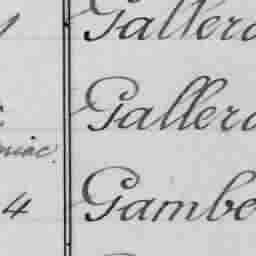 Gallera
Gallera
niac.
4 Gambe